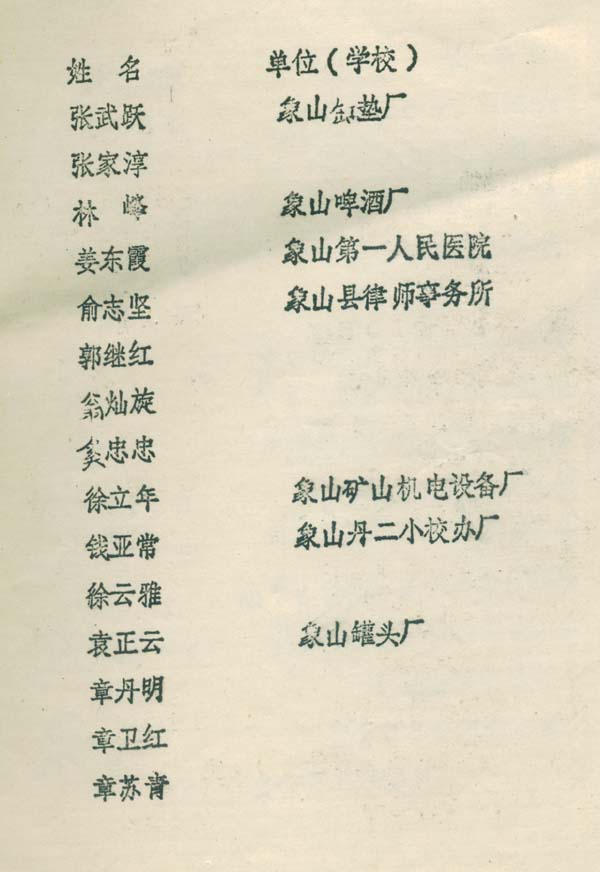 姓 名 单位(学校)
张武跃 象山缸垫厂
张家淳
林 峰 象山啤酒厂
姜东霞 象山第一人民医院
俞志坚 象山县律师事务所
郭继红
翁灿旋
奚忠忠
徐立年 象山矿山机电设备厂
钱亚常 象山丹二小校办厂
徐云雅
袁正云 象山罐头厂
章丹明
章卫红
章苏青